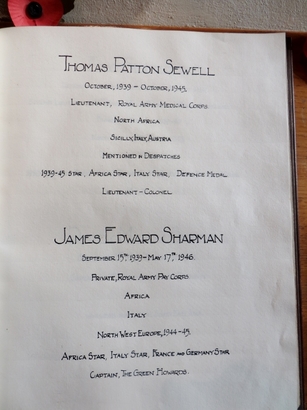 Thomas Patton Sewell
October, 1939 - October, 1945.
Lieutenant, Royal Army Medical Corps
North Africa
Sicilly, Italy, Austria
Mentioned in Despatches
1939-45 Star, Africa Star, Italy Star, Defence Medal
Lieutenant - Colonel
James Edward Sharman
September 15th 1939 - May 17th 1946.
Private, Royal Army Pay Corps
Africa
Italy
North West Europe, 1944-45.
Africa Star, Italy Star, France and Germany Star
Captain, The Green Howards.